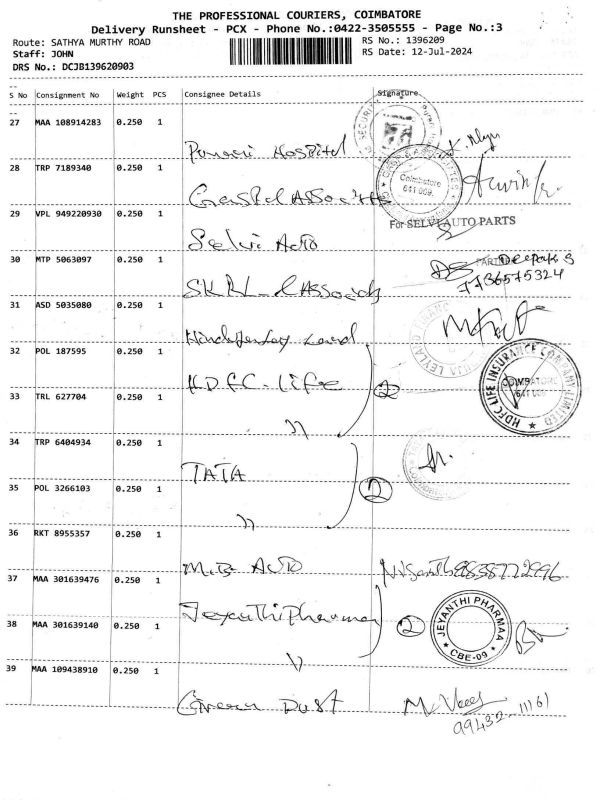 THE PROFESSIONAL COURIERS, COIMBATORE
Delivery Runsheet - PCX - Phone No.:0422-3505555 - Page No.:3
Route: SATHYA MURTHY ROAD
RS No.: 1396209
Staff: JOHN
RS Date: 12-Jul-2024
DRS No.: DCJB139620903
S No Consignment No Weight PCS Consignee Details Signature
27 MAA 108914283 0.250 1
Hospital
28 TRP 7189340 0.250 1
Associates
Coimbatore
641 009.
29 VPL 949220930 0.250 1
Selvi Auto
For SELVI AUTO PARTS
30 MTP 5063097 0.250 1
PARTNER
Deepak S
7736575324
31 ASD 5035080 0.250 1
32 POL 187595 0.250 1
HDFC-Life 2
HDFC LIFE INSURANCE COMPANY LIMITED
COIMBATORE
641 009
33 TRL 627704 0.250 1
"
34 TRP 6404934 0.250 1
TATA 2
35 POL 3266103 0.250 1
"
36 RKT 8955357 0.250 1
M.B Auto
37 MAA 301639476 0.250 1
Jeyanthi Pharmaa 2
JEYANTHI PHARMAA
CBE-09
38 MAA 301639140 0.250 1
"
39 MAA 109438910 0.250 1
Green Dust
99432 11161